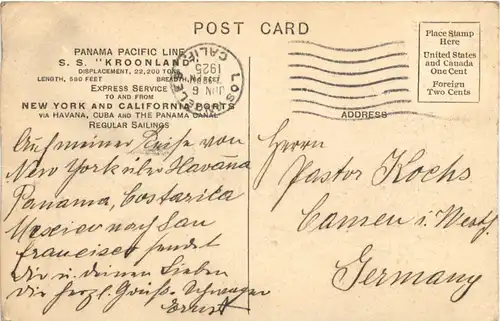 POST CARD
PANAMA PACIFIC LINE
S. S. "KROONLAND"
DISPLACEMENT, 22,200 TONS
LENGTH, 580 FEET BREADTH, 60 FEET
EXPRESS SERVICE
TO AND FROM
NEW YORK AND CALIFORNIA PORTS
VIA HAVANA, CUBA AND THE PANAMA CANAL
REGULAR SAILINGS
LOS ANGELES
CALIF.
JUN 6
1925
Place Stamp
Here
United States
and Canada
One Cent
Foreign
Two Cents
ADDRESS
Auf meiner Reise von
New York über Havana
Panama, Costarica
Mexico nach San
Francisco sendet
Dir u. deinen Lieben
die herzl. Grüße Schwager
Ernst
Herrn
Pastor Kochs
i. Westf.
Germany